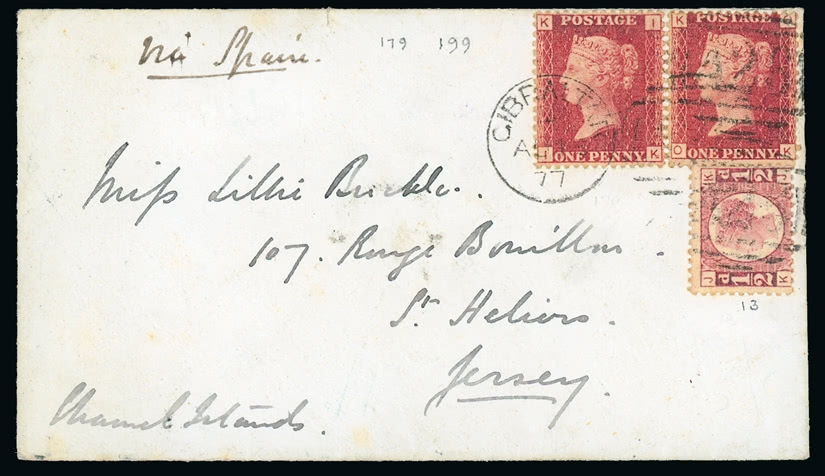 via Spain.
179 199
K I
POSTAGE
I K
ONE PENNY
K
POSTAGE
O K
ONE PENNY
GIBRALTAR
77
Miss Lillie Brickle.
107. Rouge Bouillon.
St Heliers.
Jersey.
Channel Islands.
K
d 1 2
J K
d 1 2
13